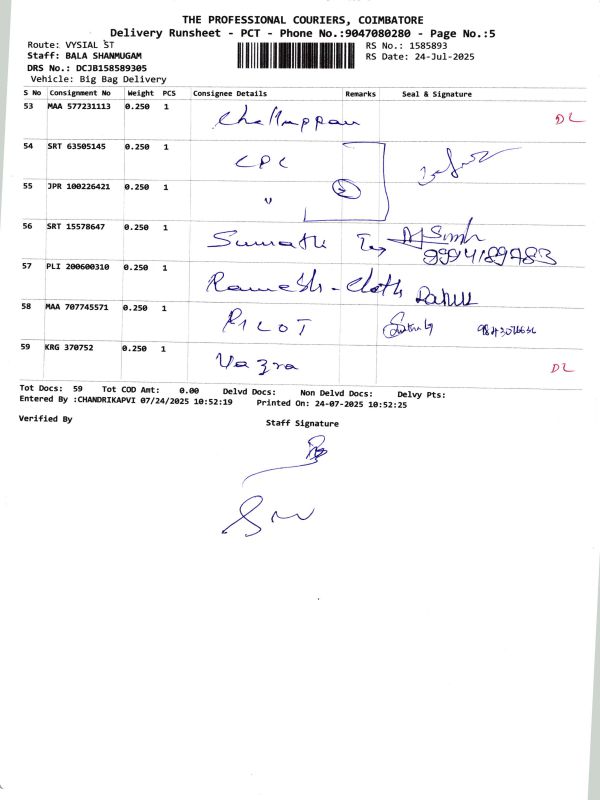 THE PROFESSIONAL COURIERS, COIMBATORE
Delivery Runsheet - PCT - Phone No.:9047080280 - Page No.:5
Route: VYSIAL ST
RS No.: 1585893
Staff: BALA SHANMUGAM
RS Date: 24-Jul-2025
DRS No.: DCJB158589305
Vehicle: Big Bag Delivery
S No Consignment No Weight PCS Consignee Details Remarks Seal & Signature
53 MAA 577231113 0.250 1 DL
54 SRT 63505145 0.250 1 CPC
55 JPR 100226421 0.250 1 "
56 SRT 15578647 0.250 1 Sumathi Tex
57 PLI 200600310 0.250 1 Ramesh - Cloth
58 MAA 707745571 0.250 1 PILOT
59 KRG 370752 0.250 1 Vazra DL
Tot Docs: 59 Tot COD Amt: 0.00 Delvd Docs: Non Delvd Docs: Delvy Pts:
Entered By :CHANDRIKAPVI 07/24/2025 10:52:19 Printed On: 24-07-2025 10:52:25
Verified By
Staff Signature